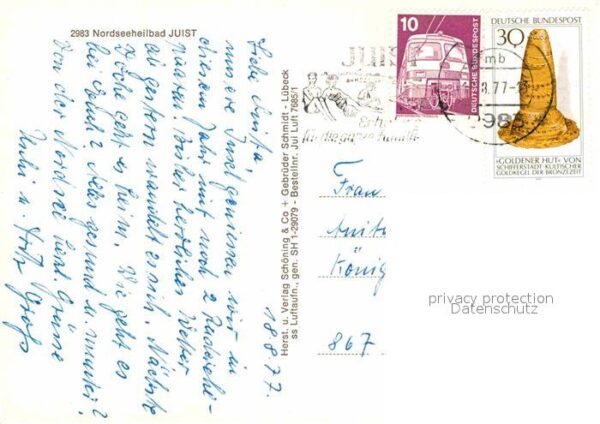 2983 Nordseeheilbad JUIST
18.8.77.
Liebe Anita,
unsere Insel genießen wir in
diesem Jahr mit noch 2 Kutscher-
paare. Bisher herrliches Wetter
ab gestern wandelt es sich. Nächste
Woche geht es heim. Wie geht es
bei Euch? Alles gesund u. munter?
Von der Nordsee liebe Grüße
Herst. u. Verlag Schöning & Co + Gebrüder Schmidt - Lübeck
ss Luftaufn., gen. SH 1-29079 - Bestellnr. Jui Luft 7685/1
JUIS
für die ganze Familie
10
DEUTSCHE BUNDESPOST
mb
8.77-
298
DEUTSCHE BUNDESPOST
30
»GOLDENER HUT« VON
SCHIFFERSTADT·KULTISCHER
GOLDKEGEL DER BRONZEZEIT
Frau
Anita
König
867
privacy protection
Datenschutz